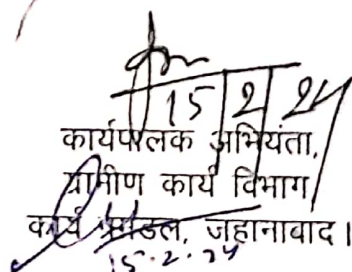 15/2/24
कार्यपालक अभियंता,
ग्रामीण कार्य विभाग
कार्य प्रमंडल, जहानाबाद।
15.2.24